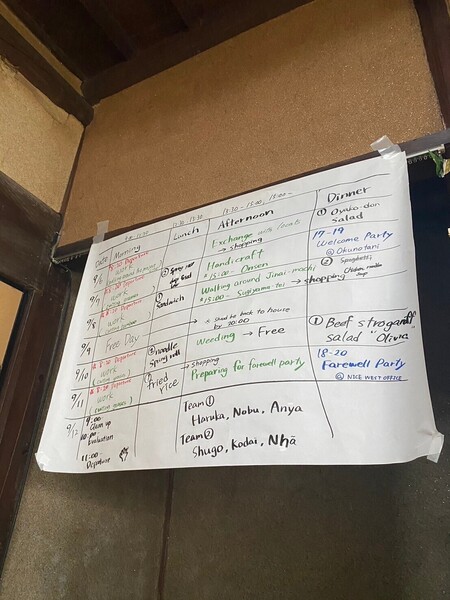 Date Morning Lunch Afternoon Dinner
12:30 - 13:30
13:30 - 15:00, 15:00 -
9/6
Departure
Work
Exchange with locals
→ shopping
① Oyako-don
Salad
9/7
Departure
Work
Handicraft
* 15:00 - Onsen
17-19
Welcome Party
@ Okunotani
9/8
Departure
Work
① Sandwich
Walking around Jinai-machi
* 15:00 - Sugiyama-tei → shopping
② Spaghetti
Chicken
soup
9/9
Free Day
* Should be back to house
by 20:00
9/10
Departure
Work
② noodle
Spring roll
Weeding → Free
① Beef stroganoff
salad "Olivia"
9/11
Departure
Work
① Fried
rice
→ Shopping
Preparing for farewell party
18-20
Farewell Party
@ NICE WEST OFFICE
9/12
9:00
Clean up
10:00
Evaluation
11:00
Departure
Team ①
Haruka, Nobu, Anya
Team ②
Shugo, Kodai, Nhã